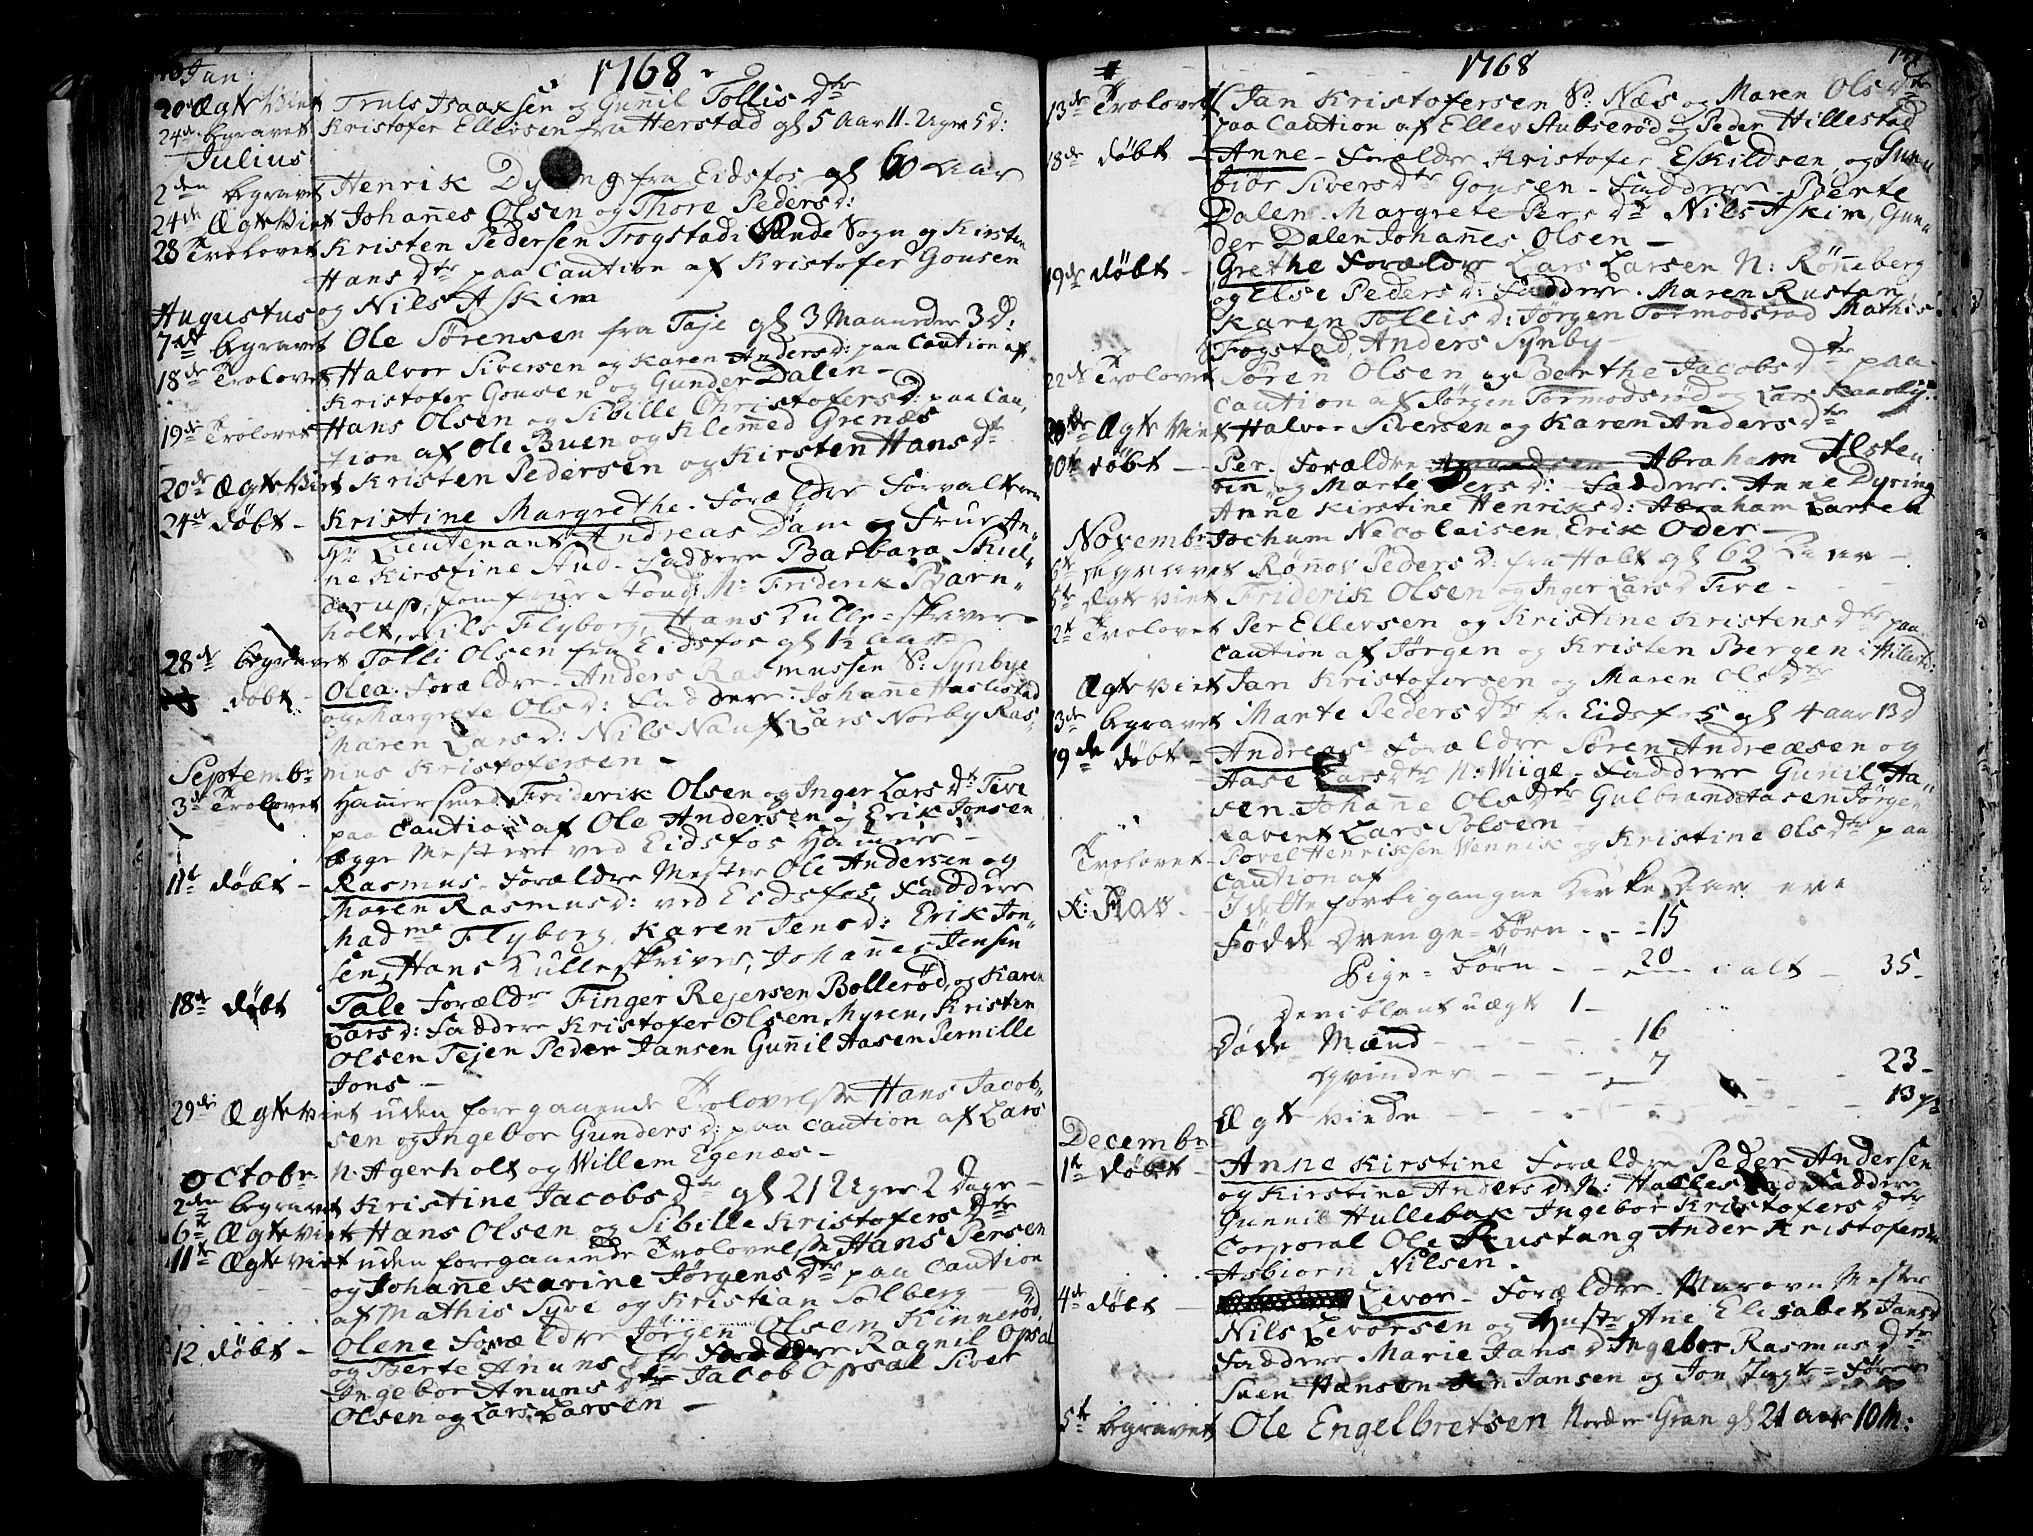 Jan:
1768
20de Ægte Viet Truls Isaaksen og Gunnil Tollis Dtr
24de begravet Kristofer Ellevsen fra Herstad gl 5 Aar 11 Uger 5 d:
Julius
2den begravet Henrik Dyring fra Eidsfos gl 60 Aar
24de Ægte Viet Johannes Olsen og Thore Peders D:
28 Trolovet Kristen Pedersen Trogstad i Sande Sogn og Kirsten
Hans Dtr paa Caution af Kristofer Gousen
Augustus og Nils Askim
7de begravet Ole Sørensen fra Taje gl 3 Maaneder 3 D:
18de Trolovet Halvor Siversen og Karen Anders D: paa Caution af
Kristofer Gousen og Gunder Dalen -
19de Trolovet Hans Olsen og Sibille Christofers D: paa Cau,
tion af Ole Buen og Klemmed Grenæs
20de Ægte Viet Kristen Pedersen og Kirsten Hans Dtr
24de døbt - Kristine Margrethe. Forældre Forvalteren
Lieutenant Andreas Dam og Frue An"
ne Kirstine Aud. Faddere Barbara Skul"
derup, Jomfrue Aoud, Mr Friderik Barn"
holt, Nils Flyborg, Hans Kulle-skriver
28de begravet Tolli Olsen fra Eidsfos gl 1½ Aar
døbt - Olea. Forældre - Anders Rasmussen P: Synbye
og Margrete Ols D: Faddere: Johanne Haslestad
Maren Lars D: Nils Nauf Lars Norby Ras"
Septembr mus Kristofersen -
3de Trolovet Hammersmed Friderik Olsen og Inger Lars Dtr Tire
paa Caution af Ole Andersen og Erik Jonsen
begge Mestere ved Eidsfos Hammere -
11te døbt - Rasmus - Forældre Mester Ole Andersen og
Maren Rasmus D: ved Eidsfos, Faddere
Madme Flyborg, Karen Jens D: Erik Jon"
sen, Hans Kulleskriver, Johannes Jensen
18de døbt Tale Forældre Finger Rejersen Bollerød og Karen
Lars D: Faddere Kristofer Olsen Myren, Kristen
Olsen Tejen Peder Jansen Gunnil Aasen Pernille
Jons -
29de Ægte Viet uden foregaaende Trolovelse Hans Jacob"
sen og Ingebor Gunders D: paa Caution af Lars
Octobr N: Agerholt og Willem Egenæs -
2den begravet Kristine Jacobs Dtr gl 21 Uger 2 Dage -
6te Ægte Viet Hans Olsen og Sibille Kristofers Dtr
11te Ægte Viet uden foregaaende Trolovelse Hans Persen
og Johanne Karine Jørgens Dtr paa Caution
af Mathis Syve og Kristian Solberg -
12 døbt - Olene Forældre Jørgen Olsen Kinnerød
og Berte Anuns Dtr Faddere Ragnil Opsal
Ingebor Anuns Dtr Jacob Opsal Siver
Olsen og Lars Larsen -
1768
13de Trolovet Jan Kristofersen P: Næs og Maren Ols Dtr
paa Caution af Ellev Aubserød og Peder Hillestad
18de døbt - Anne - Forældre Kristofer Eskildsen og Gun
biør Sivers Dtr Gousen - Faddere - Berte
Dalen. Margrete Pers Dtr Nils Askim, Gun"
der Dalen Johannes Olsen -
19de døbt - Grethe Forældre Lars Larsen N: Rønneberg
og Else Peders D: Faddere. Maren Rustan
Karen Tollis D: Jørgen Tormodsrød Mathis
Trogstad, Anders Synby -
22de Trolovet Søren Olsen og Berthe Jacobs Dtr paa
Caution af Jørgen Tormodsrød og Lars Kaasby:
Ægte Viet Halvor Siversen og Karen Anders Dtr
30te døbt - Per. Forældre Abraham Alsten
og Marte Pers D: Faddere. Anne Dyring
Anne Kirstine Henriks D: Abraham Larsen
Novembr Jochum Necolaisen, Erik Oder -
6te begravet Rønnov Peders D: fra Holt gl 62 Aar -
Ægte Viet Friderik Olsen og Inger Lars D Tire -
Trolovet Per Ellevsen og Kristine Kristens Dtr paa
Caution af Jørgen og Kristen Bergen i Hillest:
Ægte Viet Jan Kristofersen og Maren Ols Dtr
begravet Marte Peders Dtr fra Eidsfos gl 4 aar 13 D
døbt - Andreas Forældre Søren Andreæsen og
Aase Lars Dtr N: Wiige - Faddere Gunnil Aa"
sen. Johanne Ols Dtr Gulbrand Aasen Jørgen
Ravert Lars Polsen -
Trolovet - Povel Henriksen Wennik og Kristine Ols Dtr paa
Caution af
I dette forbigangne Kirke Aar ere
Fødde Drenge-børn - - 15
Pige-børn - - 20 i alt - 35 -
Deriblant uægte 1 -
Døde Mænd - - - - 16
Qvinder - - - 7 - 23 -
Ægte Viede - - - - - 13 p:
Decembr
1te døbt - Anne Kirstine Forældre Peder Andersen
og Kirstine Anders D: N: Hallestad Faddere
Gunnil Hullebak Ingebor Kristofers Dtr
Corporal Ole Rustang Ander Kristofersen
Asbiørn Nilsen.
4de døbt - Levor - Forældre. Murere Mester
Nils Levorsen og Hustr Ane Elesabet Jans D
Faddere Marie Jans D Ingebor Rasmus Dtr
Suen Hansen Jansen og Jon Jagt-Fører
5te begravet Ole Engelbretsen Nordre Gran gl 21 aar 10 M: